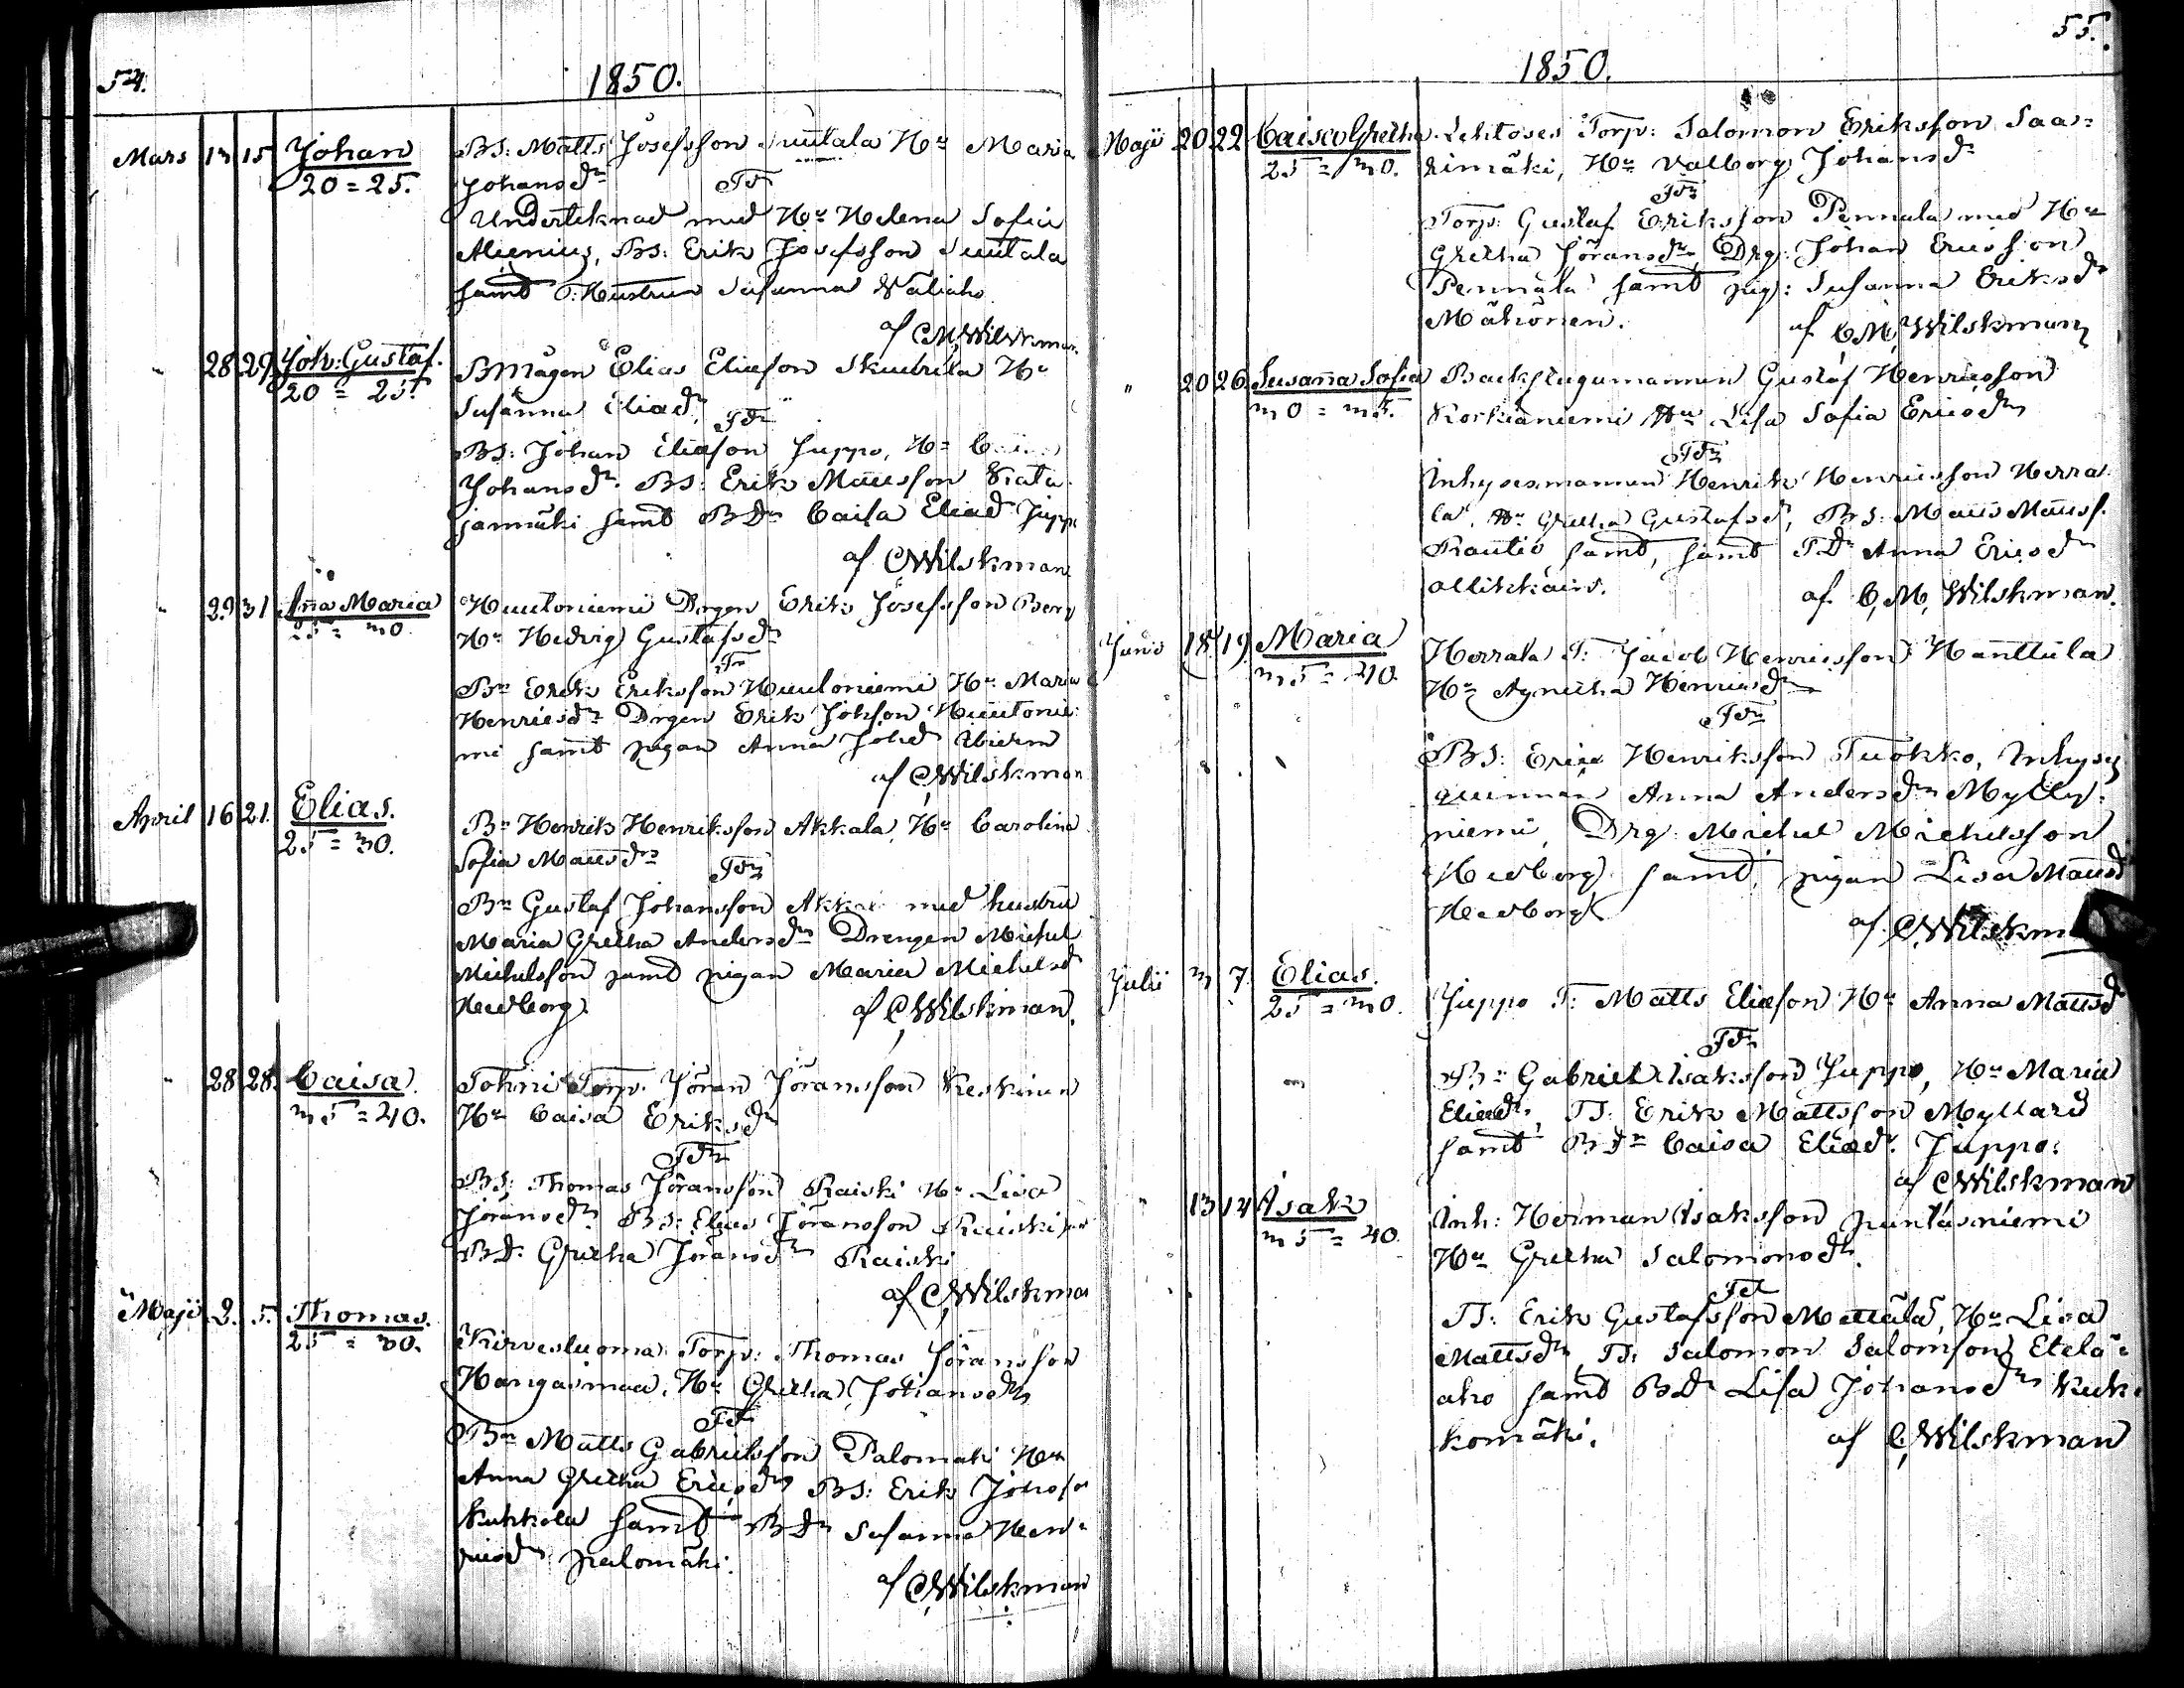 54.
1850.
Mars 13 15 Johan BS: Matts Josefsson Huutala Hu Maria
20 = 25. Johansdr
Tdr
Underteknad med Hu Helena Sofia
Alcenius, BS: Erik Josefsson Huutala
samt T: Hustrun Susanna Waliaho
af CM Wilskman
" 28 29 Joh: Gustaf. BMågen Elias Eliasson Skuutrila Hu
20 = 25. Susanna Eliadr
Tdr
BS: Johan Eliasson Juppo, Hu
Johansdr BS: Erik Mattsson Viata
janmäki samt BDr Caisa Eliadr Juppo
af CWilskman
" 29 31 Anna Maria Huutoniemi Drgen Erik Josefsson Berg
25 = 30. Hu Hedvig Gustafsdr
Tr
Bn Erik Eriksson Huutoniemi Hu Maria
Henricsdr Drgen Erik Johsson Huutonie
mi samt pigan Anna Johdr ibidem
af CWilskman
April 16 21. Elias. Bn Henrik Henriksson Akkala, Hu Carolina
25 = 30. Sofia Mattsdr
Tdr
Bn Gustaf Johansson Akkala med hustru
Maria Gretha Andersdr Drengen Michel
Michelsson samt pigan Maria Michelsdr
Hedborg.
af CWilskman.
" 28 28. Caisa. Tohni Torp. Jöran Jöransson Keskinen
35 = 40. Hu Caisa Eriksdr
Tdr
BS: Thomas Jöransson Raiski Hu Lisa
Jöransdr BS: Elias Jöransson Raiski samt
BD: Gretha Jöransdr Raiski
af CWilskman
Maji 2. 5. Thomas. Kirvesluoma Torp: Thomas Jöransson
25 = 30. Kangasmaa, Hu Gretha Johansdr
Tdr
Bn Matts Gabrielsson Palomäki Hu
Anna Gretha Ericsdr BS: Erik Johsson
Kukkola samt BDr Susanna Hen-
ricsdr palomäki.
af CWilskman
55.
1850.
Maji 20 22 Caisa Gretha. Lehtoses Torp: Salomon Eriksson Saa=
25 = 30. rimäki, Hu Valborg Johansdr
Tdr
Torp: Gustaf Eriksson Pennala med Hu
Gretha Jöransdr, Drg: Johan Ericsson
Pennala samt pig: Susanna Eriksdr
Mähönen.
af C,M, Wilskman
" 20 26 Susanna Sofia Backstugumannen Gustaf Henricsson
30 = 35. Koskianiemi Hu Lisa Sofia Ericsdr
Tdr
Inhysesmannen Henrik Henricsson Herra
la, Hu Gretha Gustafsdr, BS: Matts Mattss.
Rautio samt, samt TDr Anna Ericsdr
Ollikkains.
af. C,M, Wilskman.
Junii 18. 19. Maria Herrala T: Jacob Henricsson Hanttula
35 = 40. Hu Agnetha Henricsdr
Tdr
BS: Eric Henriksson Tuokko, Inhyses
quinnan Anna Andersdr Mylly-
niemi, Drg: Michel Michelsson
Hedborg samt pigan Lisa Mattsdr
Hedborg
af. CWilskman
Julii 3 7. Elias. Juppo T: Matts Eliasson Hu Anna Mattsdr
25 = 30.
Tdr
Bn Gabriel Isaksson Juppo, Hu Maria
Eliadr, TS: Erik Mattsson Myllari
samt BDr Caisa Eliadr Juppo:
af CWilskman
" 13 14 Isak Inh: Herman Isaksson puntasniemi
35 = 40. Hu Gretha Salomonsdr.
Tdr
TS: Erik Gustafsson Mettälä, Hu Lisa
Mattsdr, TS: Salomon Salomsson Etelä=
aho samt BDr Lisa Johansdr Kuk-
komäki.
af C,Wilskman